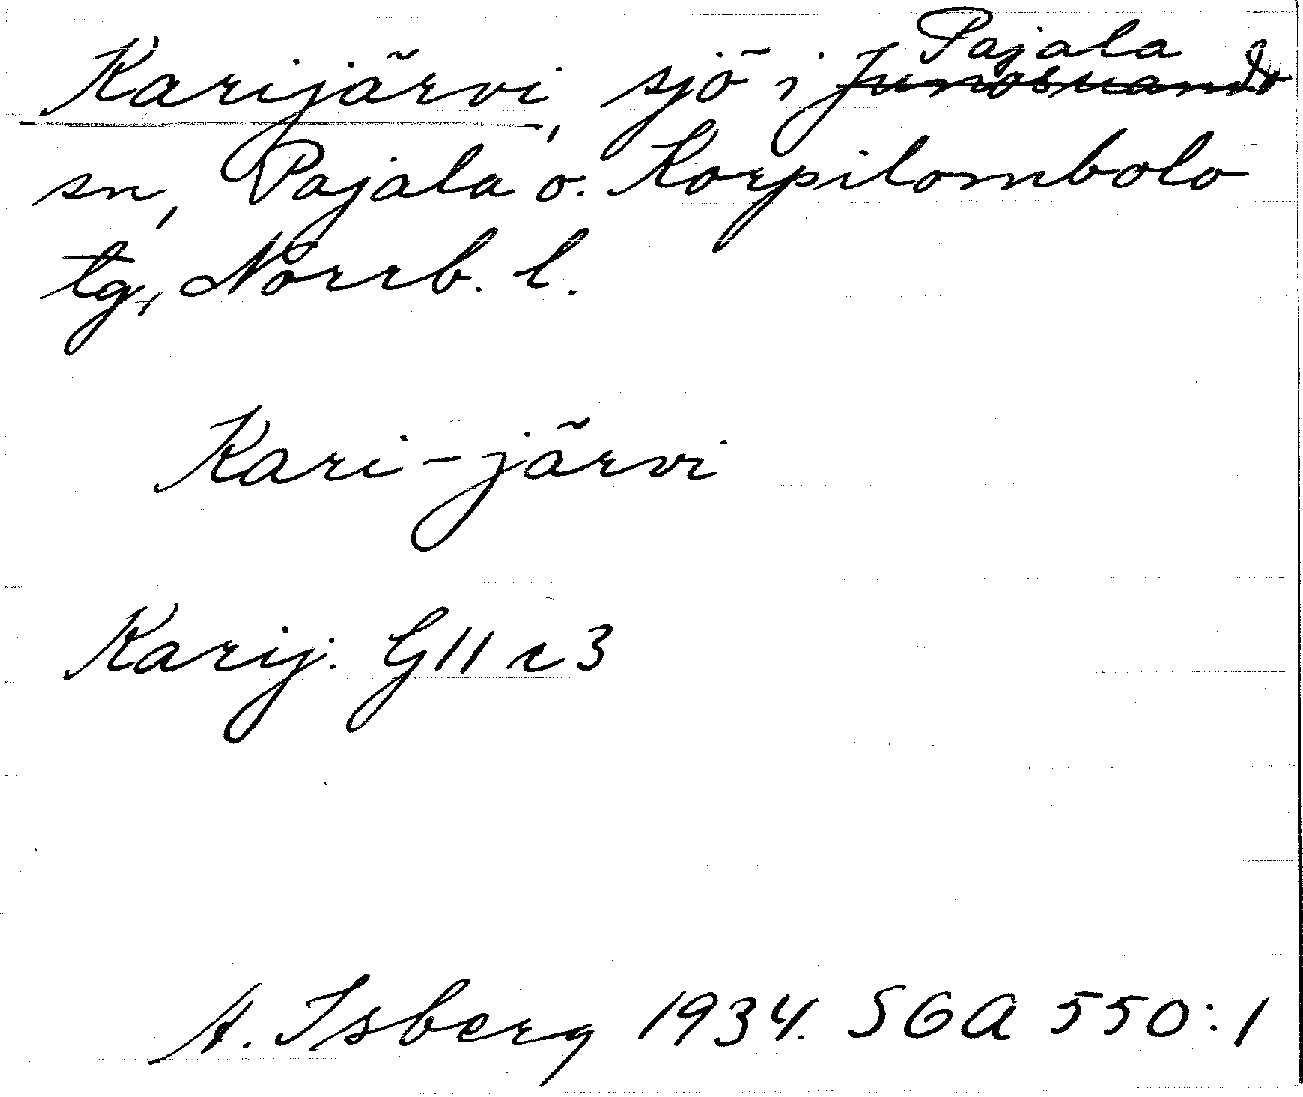 Karijärvi, sjö i Pajala ~~Junosuando~~
sn, Pajala o. Korpilombolo
tg, Norrb. l.
Kari-järvi
Karij. G 11 c 3
A. Isberg 1934. SGA 550:1